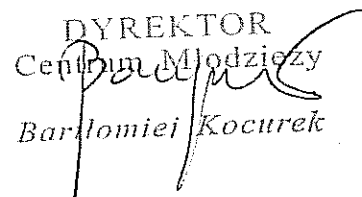 DYREKTOR
Centrum Młodzieży
Bartłomiej Kocurek